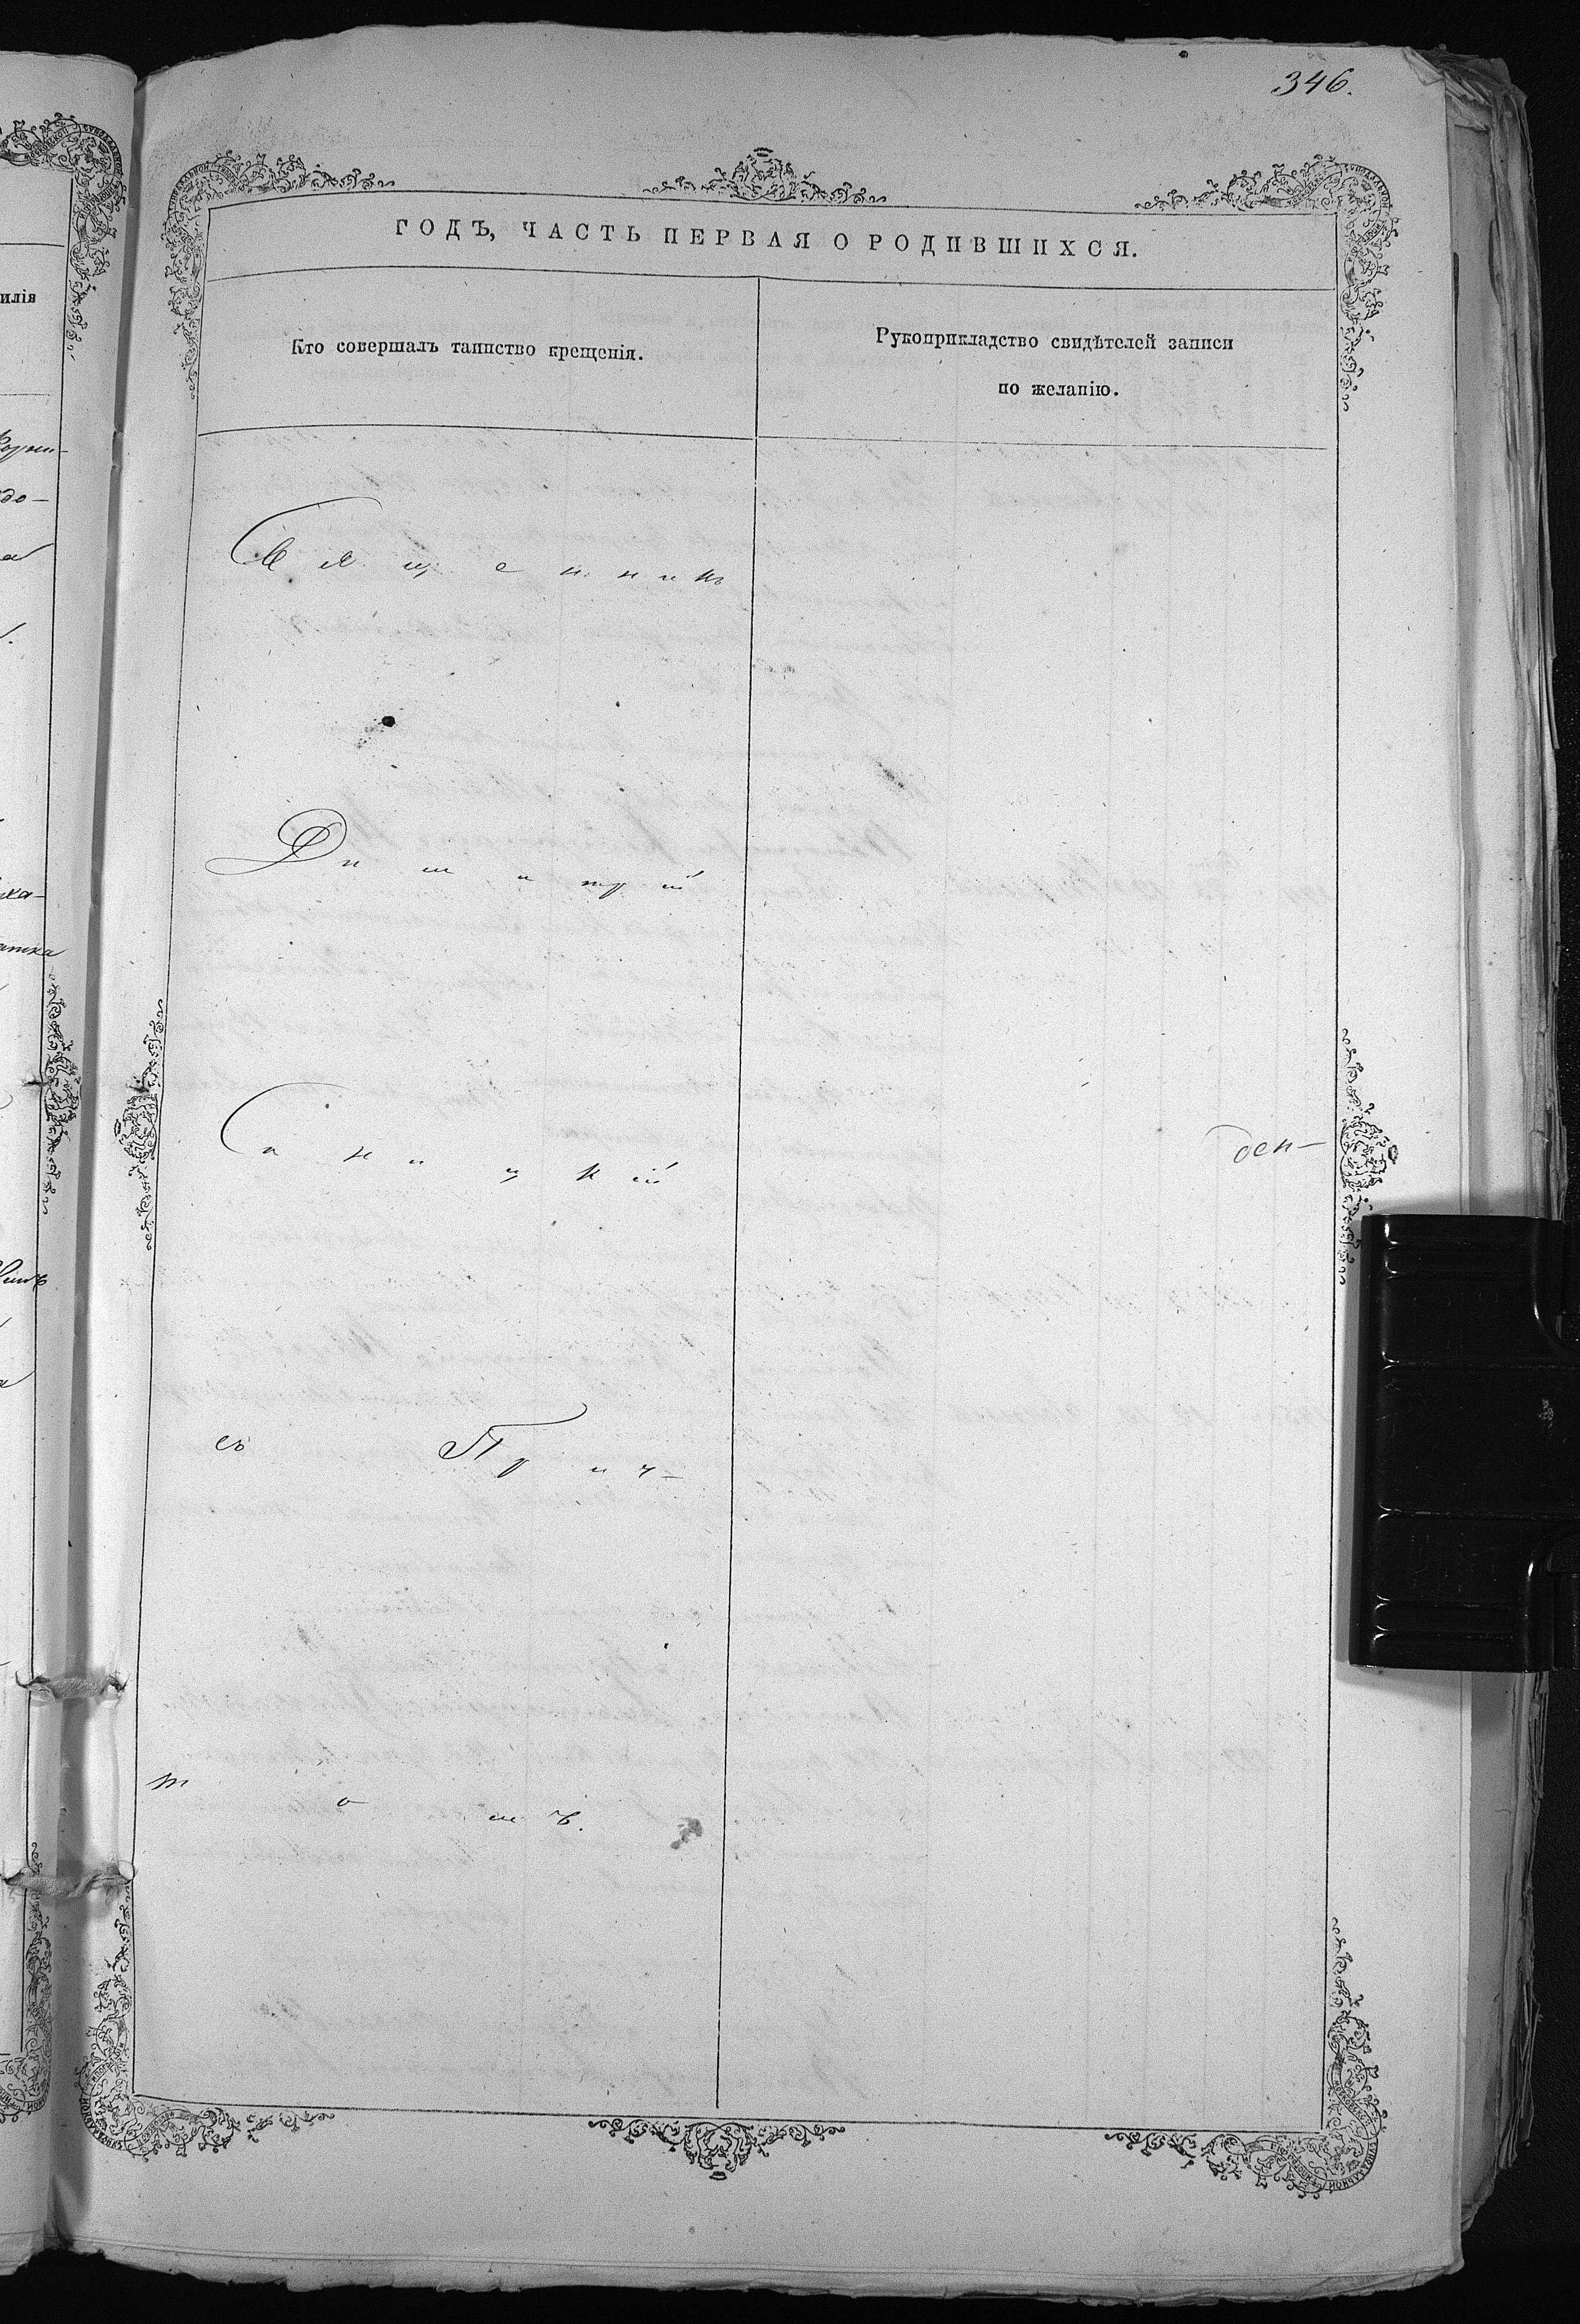 346.
ГОДЪ, ЧАСТЬ ПЕРВАЯ О РОДИВШИХСЯ.
Кто совершалъ таинство крещенія.
Рукоприкладство свидѣтелей записи
по желанію.
Священникъ
Димитрій
Синицкій
съ Прич-
томъ.